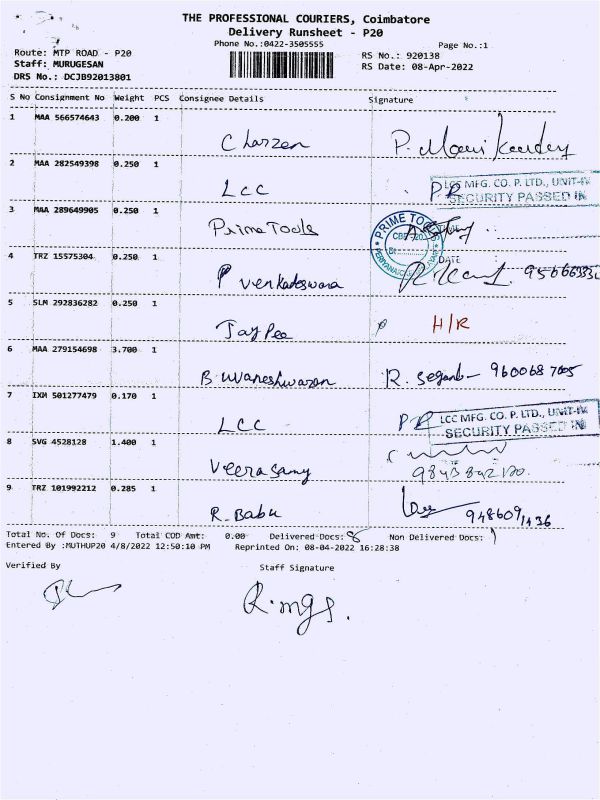 THE PROFESSIONAL COURIERS, Coimbatore
Delivery Runsheet - P20
Phone No.:0422-3505555
Page No.:1
Route: MTP ROAD - P20
RS No.: 920138
Staff: MURUGESAN
RS Date: 08-Apr-2022
DRS No.: DCJB92013801
S No Consignment No Weight PCS Consignee Details Signature
1 MAA 566574643 0.200 1
Charzen
2 MAA 282549398 0.250 1
LCC PR
LCC MFG. CO. P. LTD., UNIT-IV
SECURITY PASSED IN
3 MAA 289649905 0.250 1
Prime Tools
PRIME TOOLS
4 TRZ 15575304 0.250 1
DATE
P venkadeswara
5 SLM 292836282 0.250 1
Jay Pee H/R
6 MAA 279154698 3.700 1
Buvaneshwaran R.
7 IXM 501277479 0.170 1
LCC PR
LCC MFG. CO. P. LTD., UNIT-IV
SECURITY PASSED IN
8 SVG 4528128 1.400 1
Veerasamy
9 TRZ 101992212 0.285 1
R. Babu
Total No. Of Docs: 9 Total COD Amt: 0.00 Delivered Docs: 8 Non Delivered Docs: 1
Entered By :MUTHUP20 4/8/2022 12:50:10 PM Reprinted On: 08-04-2022 16:28:38
Verified By Staff Signature